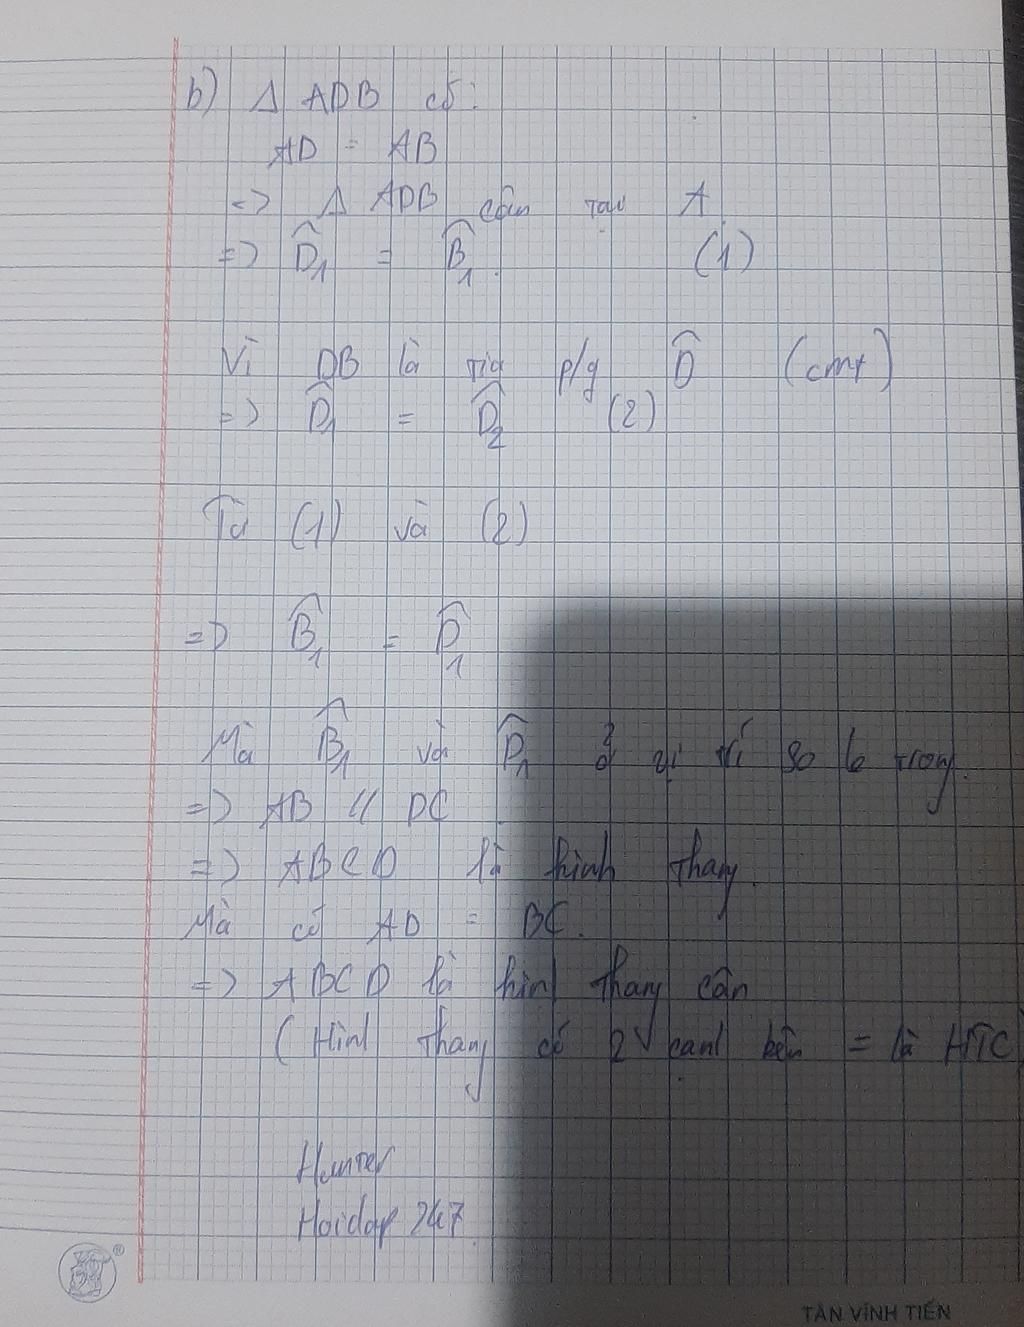 b) Δ ADB có:
AD = AB
=> Δ ADB cân tại A
=> D̂₁ = B̂₁. (1)
Vì DB là tia p/g D̂ (cmt)
=> D̂₁ = D̂₂ (2)
Từ (1) và (2)
=> B̂₁ = D̂₁
Mà B̂₁ và D̂₁ ở vị trí so le trong.
=> AB // DC
=> ABCD là hình thang.
Mà có AD = BC.
=> ABCD là hình thang cân
(Hình thang có 2 cạnh bên = là HTC)
Hunter
Hoidap 247.
®
TÂN VĨNH TIẾN